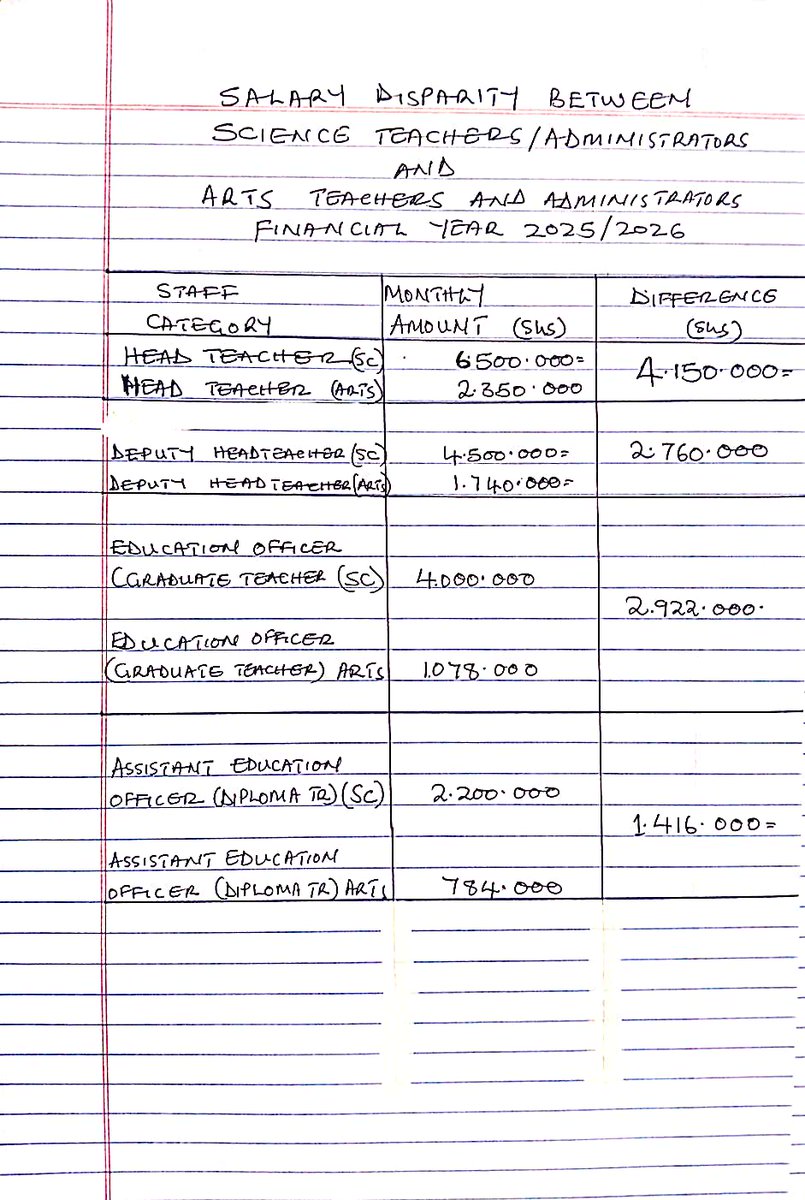 SALARY DISPARITY BETWEEN
SCIENCE TEACHERS/ADMINISTRATORS
AND
ARTS TEACHERS AND ADMINISTRATORS
FINANCIAL YEAR 2025/2026
STAFF CATEGORY
MONTHLY AMOUNT (Shs)
DIFFERENCE (Shs)
HEAD TEACHER (SC) 6.500.000=
HEAD TEACHER (ARTS) 2.350.000
4.150.000=
DEPUTY HEADTEACHER (SC) 4.500.000= 2.760.000
DEPUTY HEADTEACHER (ARTS) 1.740.000=
EDUCATION OFFICER
(GRADUATE TEACHER (SC) 4.000.000
2.922.000.
EDUCATION OFFICER
(GRADUATE TEACHER) ARTS 1.078.000
ASSISTANT EDUCATION
OFFICER (DIPLOMA TR) (SC) 2.200.000
1.416.000=
ASSISTANT EDUCATION
OFFICER (DIPLOMA TR) ARTS 784.000